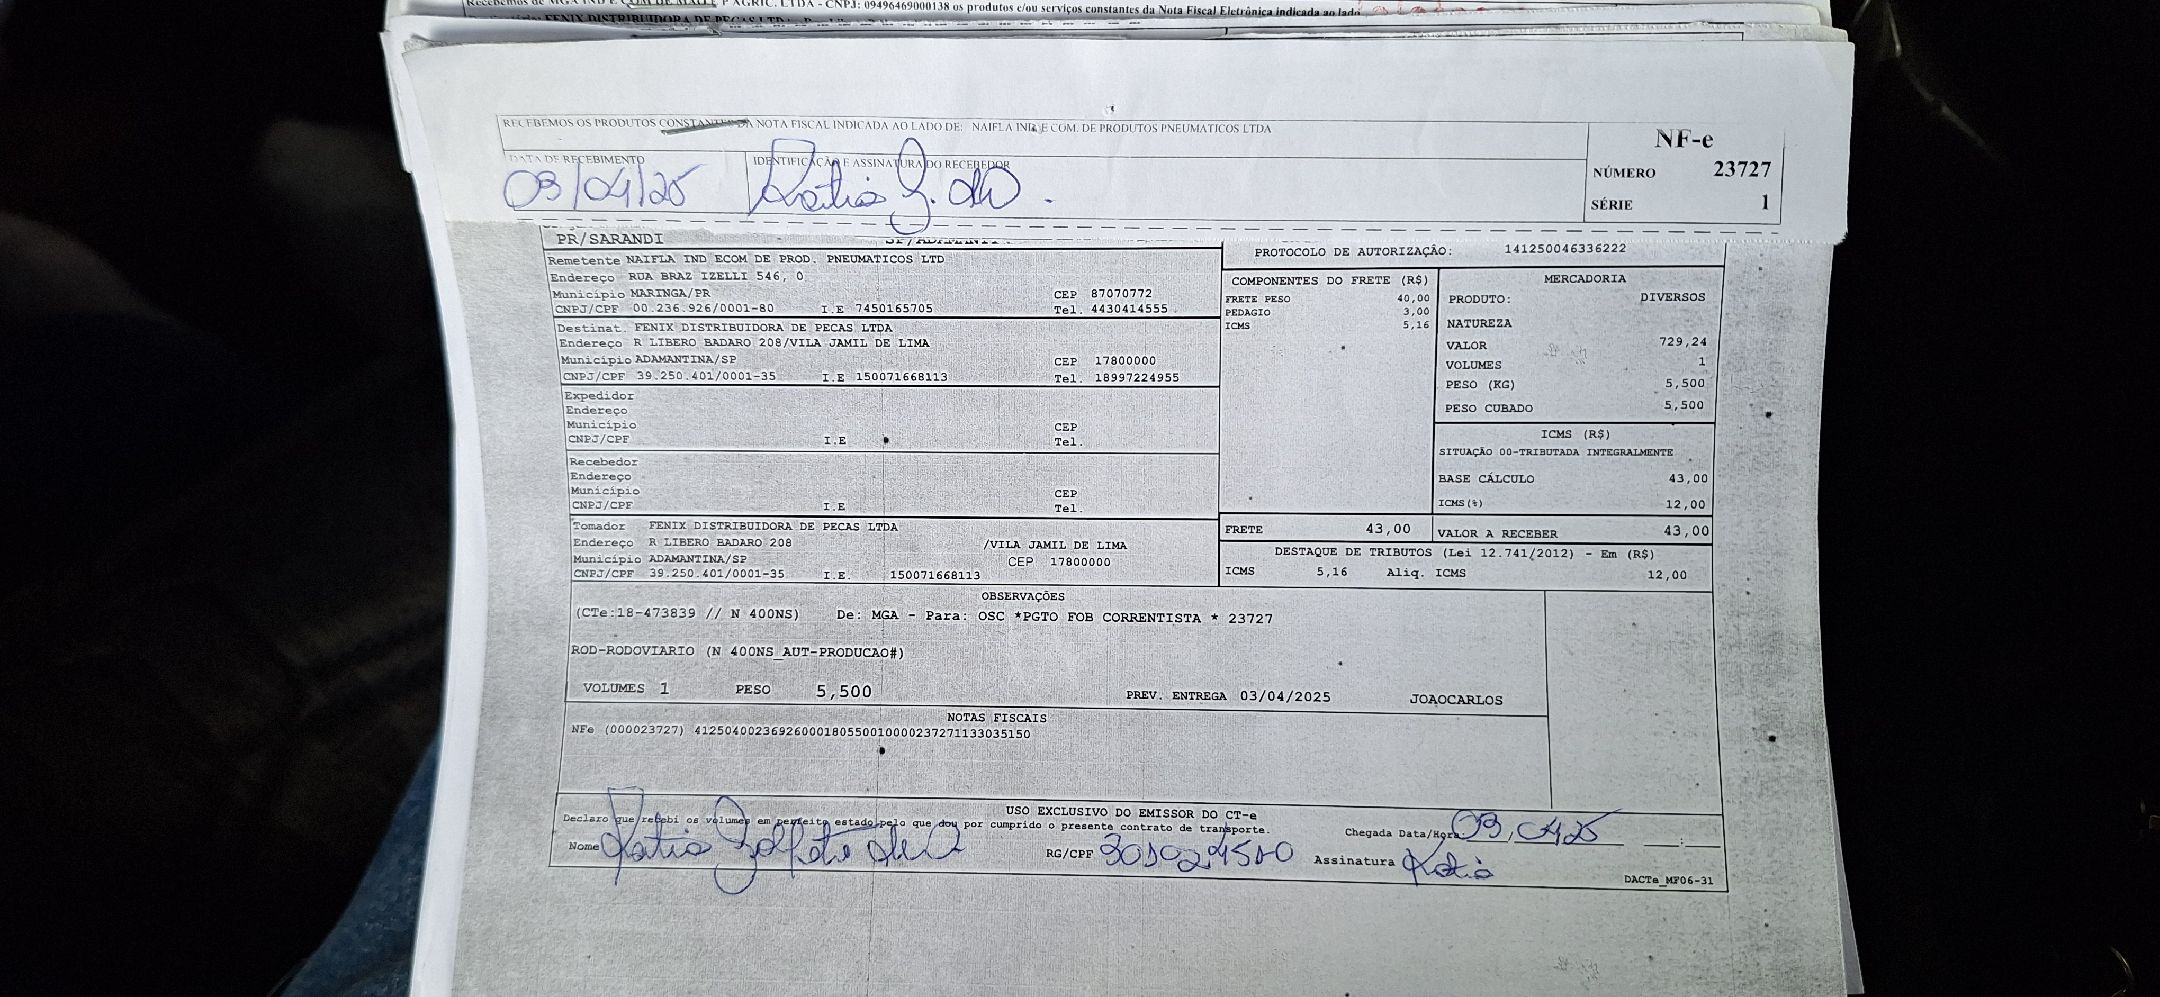 P AGRIC. LTDA - CNPJ: 09496469000138 os produtos e/ou serviços constantes da Nota Fiscal Eletrônica indicada ao lado
FENIX DISTRIBUIDORA DE PECAS LTDA
RECEBEMOS OS PRODUTOS CONSTANTES DA NOTA FISCAL INDICADA AO LADO DE: NAIFLA IND E COM. DE PRODUTOS PNEUMATICOS LTDA
NF-e
NÚMERO 23727
SÉRIE 1
DATA DE RECEBIMENTO
03/04/25
IDENTIFICAÇÃO E ASSINATURA DO RECEBEDOR
PR/SARANDI
PROTOCOLO DE AUTORIZAÇÃO: 141250046336222
Remetente NAIFLA IND ECOM DE PROD. PNEUMATICOS LTD
Endereço RUA BRAZ IZELLI 546, 0
Município MARINGA/PR CEP 87070772
CNPJ/CPF 00.236.926/0001-80 I.E 7450165705 Tel. 4430414555
Destinat. FENIX DISTRIBUIDORA DE PECAS LTDA
Endereço R LIBERO BADARO 208/VILA JAMIL DE LIMA
Município ADAMANTINA/SP CEP 17800000
CNPJ/CPF 39.250.401/0001-35 I.E 150071668113 Tel. 18997224955
Expedidor
Endereço
Município CEP
CNPJ/CPF I.E Tel.
Recebedor
Endereço
Município CEP
CNPJ/CPF I.E Tel.
Tomador FENIX DISTRIBUIDORA DE PECAS LTDA
Endereço R LIBERO BADARO 208 /VILA JAMIL DE LIMA
Município ADAMANTINA/SP CEP 17800000
CNPJ/CPF 39.250.401/0001-35 I.E. 150071668113
COMPONENTES DO FRETE (R$)
FRETE PESO 40,00
PEDAGIO 3,00
ICMS 5,16
MERCADORIA
PRODUTO: DIVERSOS
NATUREZA
VALOR 729,24
VOLUMES 1
PESO (KG) 5,500
PESO CUBADO 5,500
ICMS (R$)
SITUAÇÃO 00-TRIBUTADA INTEGRALMENTE
BASE CÁLCULO 43,00
ICMS(%) 12,00
FRETE 43,00 VALOR A RECEBER 43,00
DESTAQUE DE TRIBUTOS (Lei 12.741/2012) - Em (R$)
ICMS 5,16 Aliq. ICMS 12,00
OBSERVAÇÕES
(CTe:18-473839 // N 400NS) De: MGA - Para: OSC *PGTO FOB CORRENTISTA * 23727
ROD-RODOVIARIO (N 400NS_AUT-PRODUCAO#)
VOLUMES 1 PESO 5,500 PREV. ENTREGA 03/04/2025 JOAOCARLOS
NOTAS FISCAIS
NFe (000023727) 41250400236926000180550010000237271133035150
USO EXCLUSIVO DO EMISSOR DO CT-e
Declaro que recebi os volumes em perfeito estado pelo que dou por cumprido o presente contrato de transporte.
Chegada Data/Hora 03, 04 25 __:__
Nome RG/CPF Assinatura Katia
DACTe_MF06-31